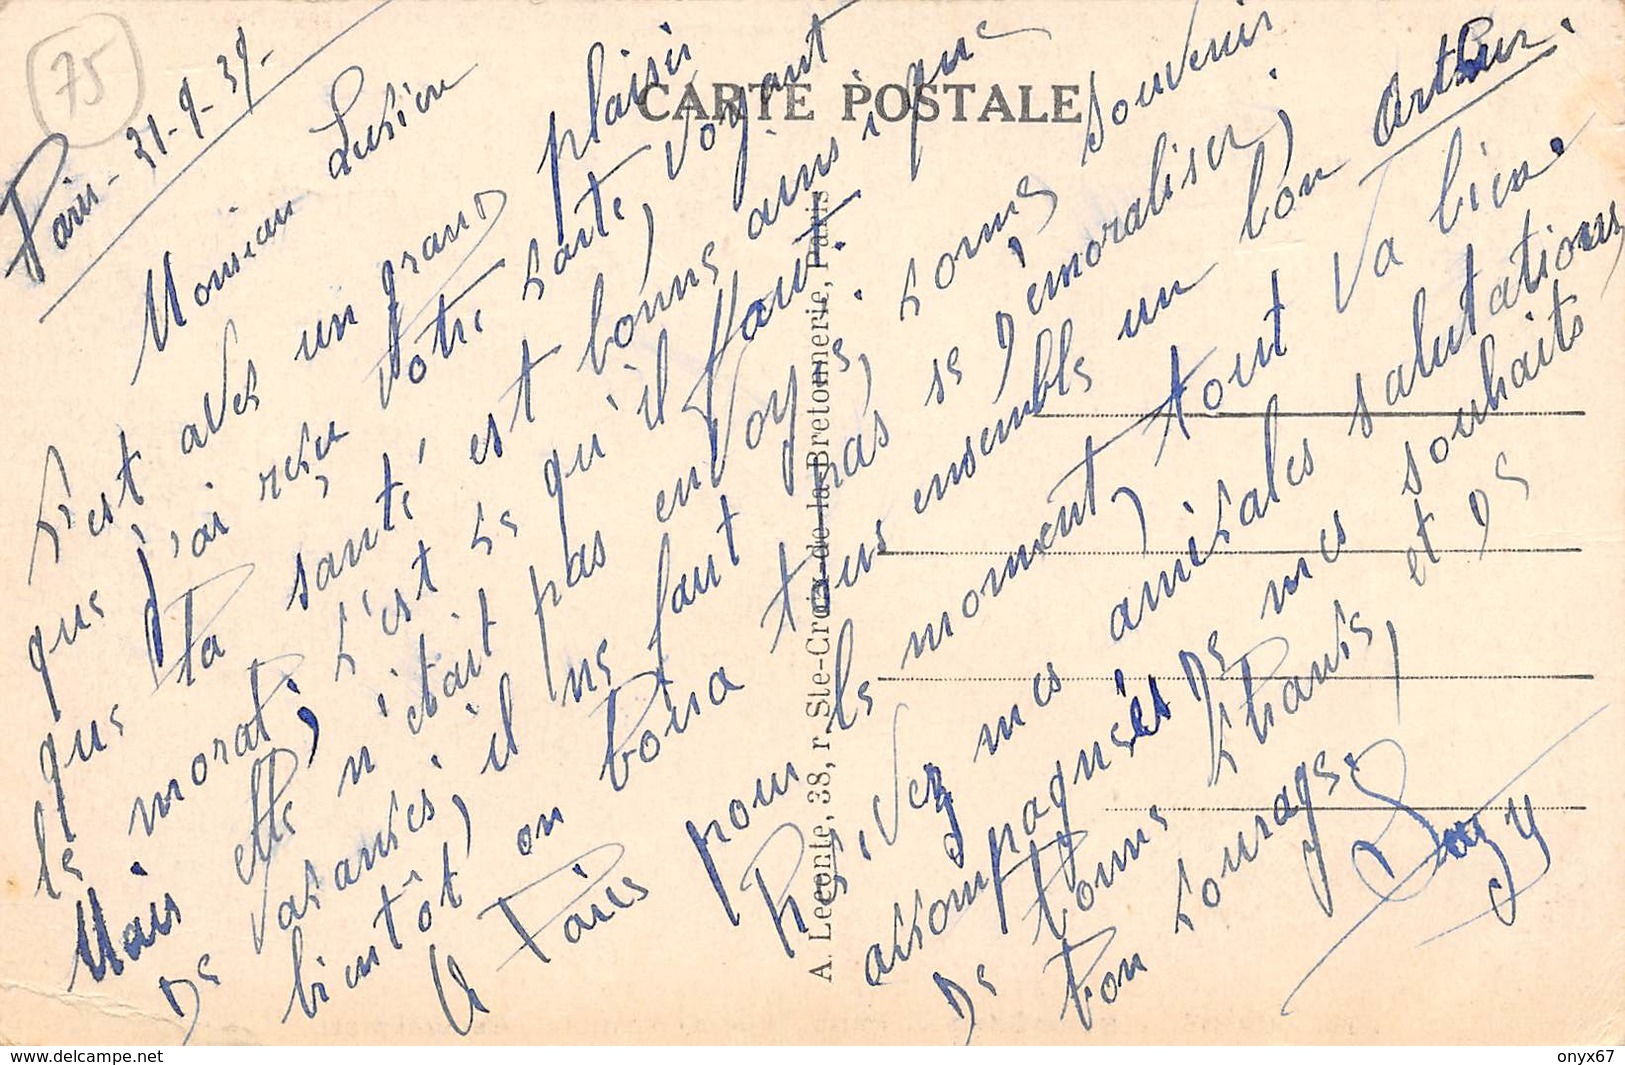 75
CARTE POSTALE
A. Leconte, 38, r. Ste-Croix-de-la-Bretonnerie, Paris
Paris - 21-9-39-
Monsieur Lucien
C'est avec un grand plaisir
que j'ai reçu votre carte, voyant
que ta santé est bonne ainsi que
le moral, c'est ce qu'il faut.
Mais elle n'était pas envoyé, comme souvenir
de vacances; il ne faut pas se démoraliser,
bientôt, on boira tous ensemble un bon
à Paris pour le moment, tout va bien.
Arthur.
Recevez mes amicales salutations,
accompagnées de mes souhaits
de bonne chance, et de
bon courage.
Suzy
delcampe.net
onyx67